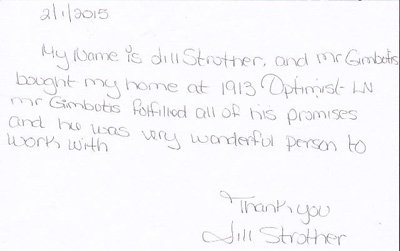 2/1/2015
My Name is Jill Strother, and mr Gimbotis
bought my home at 1913 Optimist LN
mr Gimbotis fulfilled all of his promises
and he was very wonderful person to
work with
Thank you
Jill Strother